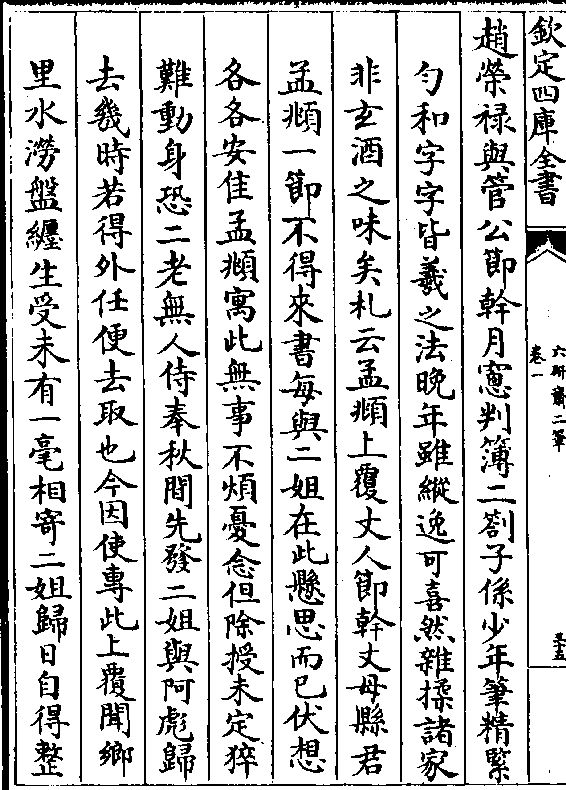 欽定四庫全書
六研齋二筆
卷一
趙榮祿與管公節幹月憲判簿二劄子係少年筆精緊
勻和字字皆羲之法晚年雖縱逸可喜然雜揉諸家
非玄酒之味矣札云孟頫上覆丈人節幹丈母縣君
孟頫一節不得來書每與二姐在此懸思而已伏想
各各安佳孟頫寓此無事不煩憂念但除授未定猝
難動身恐二老無人侍奉秋間先發二姐與阿彪歸
去幾時若得外任便去取也今因使專此上覆聞鄉
里水澇盤纏生受未有一毫相寄二姐歸日自得整